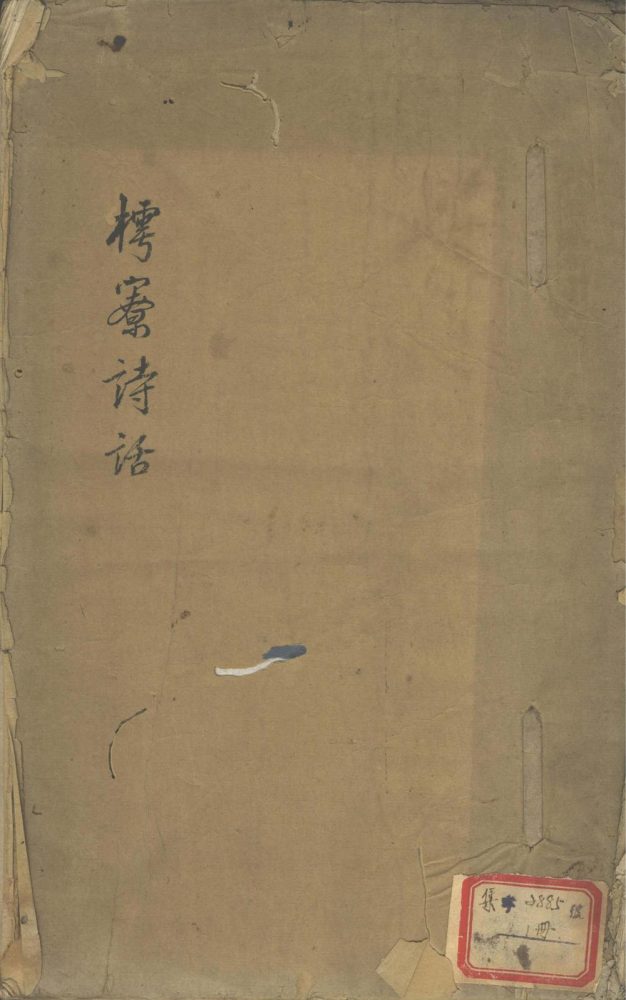 樗寮詩話
集 3885 號
1冊